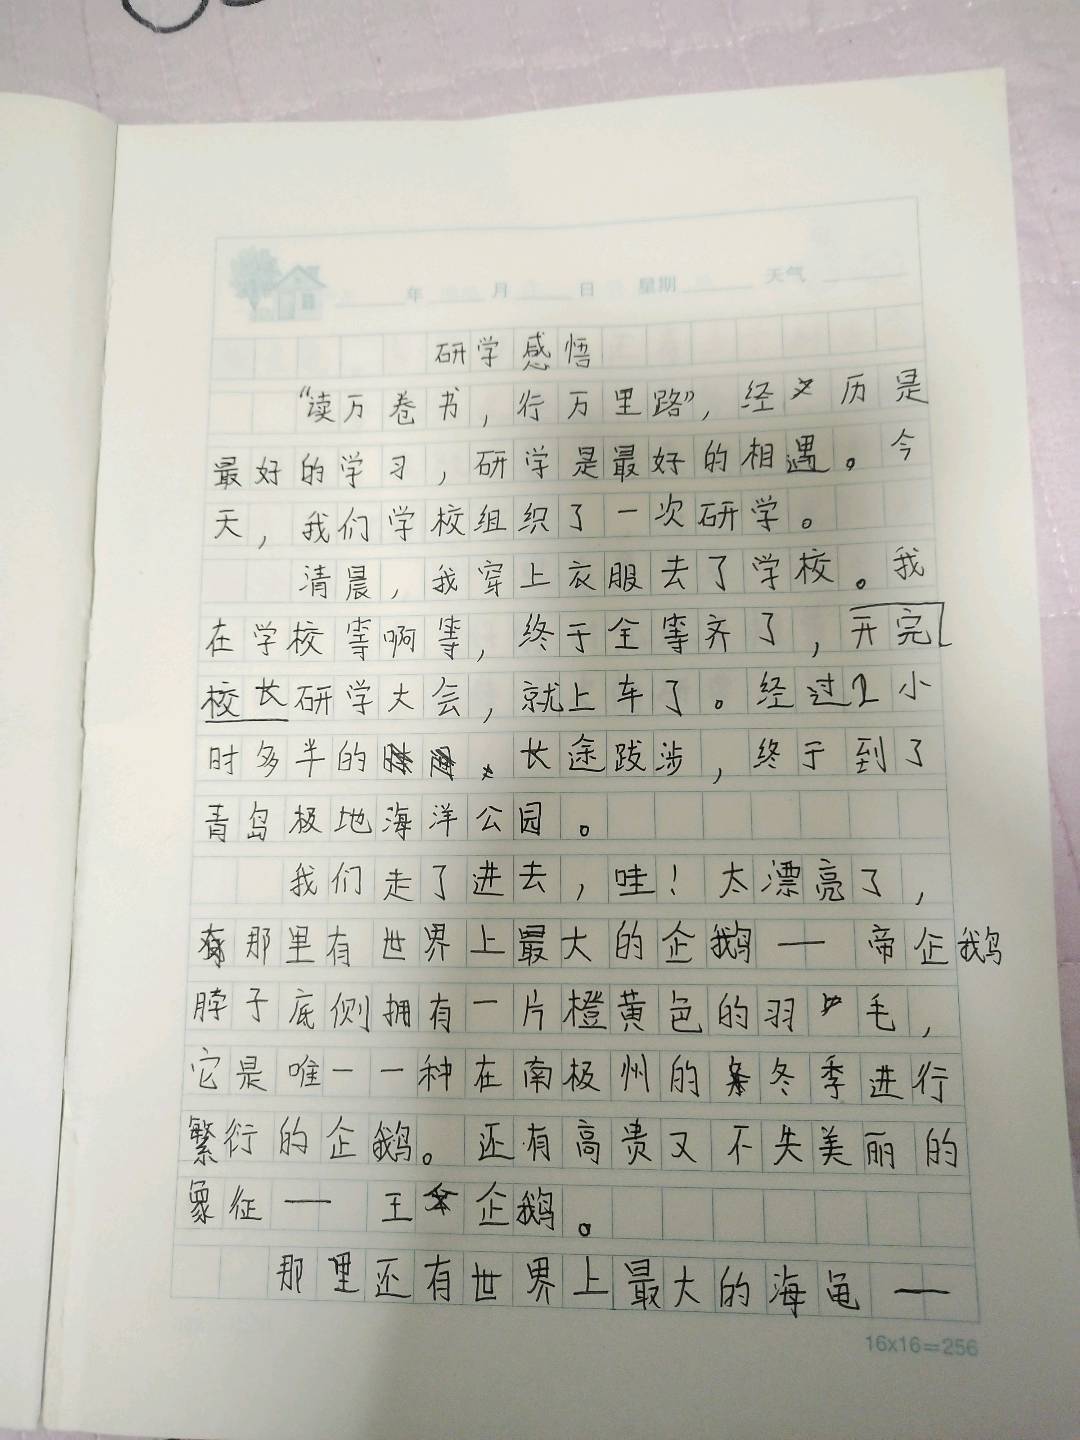 年 月 日 星期 天气
研学感悟
“读万卷书，行万里路”，经历是
最好的学习，研学是最好的相遇。今
天，我们学校组织了一次研学。
清晨，我穿上衣服去了学校。我
在学校等啊等，终于全等齐了，开完
校长研学大会，就上车了。经过2小
时多半的长途跋涉，终于到了
青岛极地海洋公园。
我们走了进去，哇！太漂亮了，
那里有世界上最大的企鹅——帝企鹅
脖子底侧拥有一片橙黄色的羽毛，
它是唯一一种在南极州的冬季进行
繁衍的企鹅。还有高贵又不失美丽的
象征——王企鹅。
那里还有世界上最大的海龟——
16x16=256